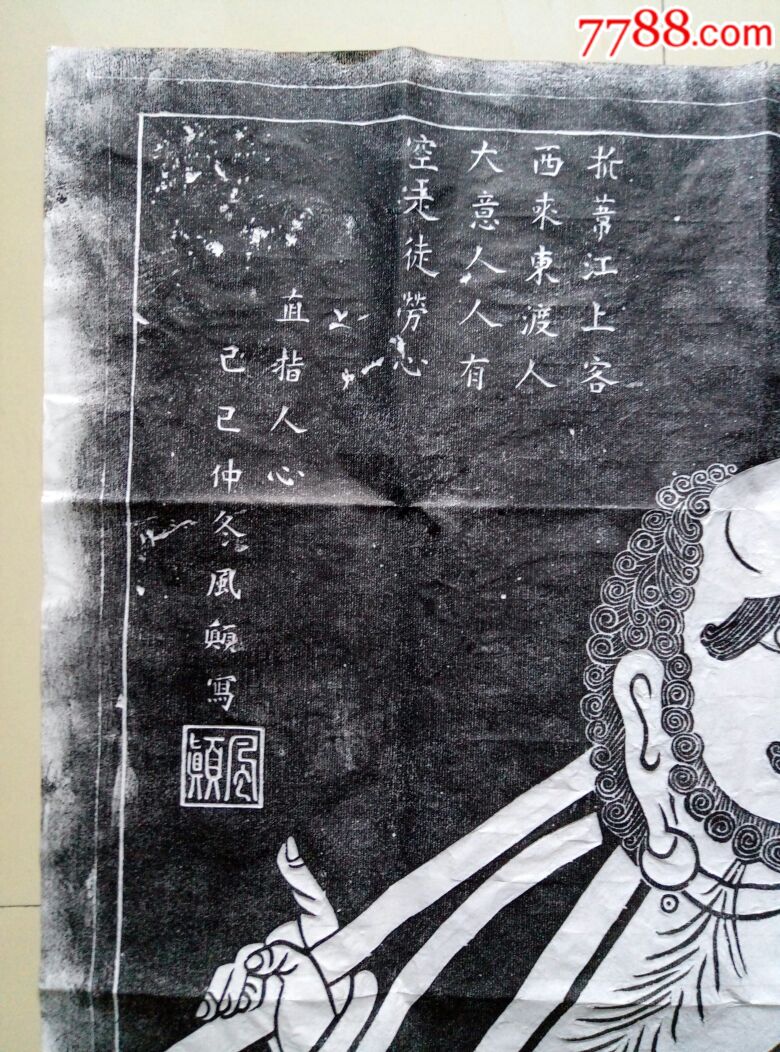 7788.com
折葦江上客
西來東渡人
大意人人有
空走徒勞心
直指人心
己巳仲冬風顛寫
風顛